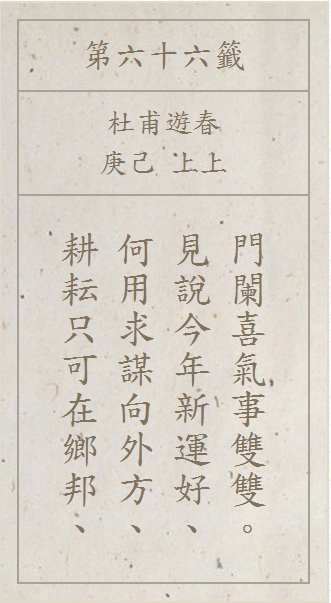 第六十六籤
杜甫遊春
庚己 上上
耕耘只可在鄉邦、
何用求謀向外方、
見說今年新運好、
門闌喜氣事雙雙。